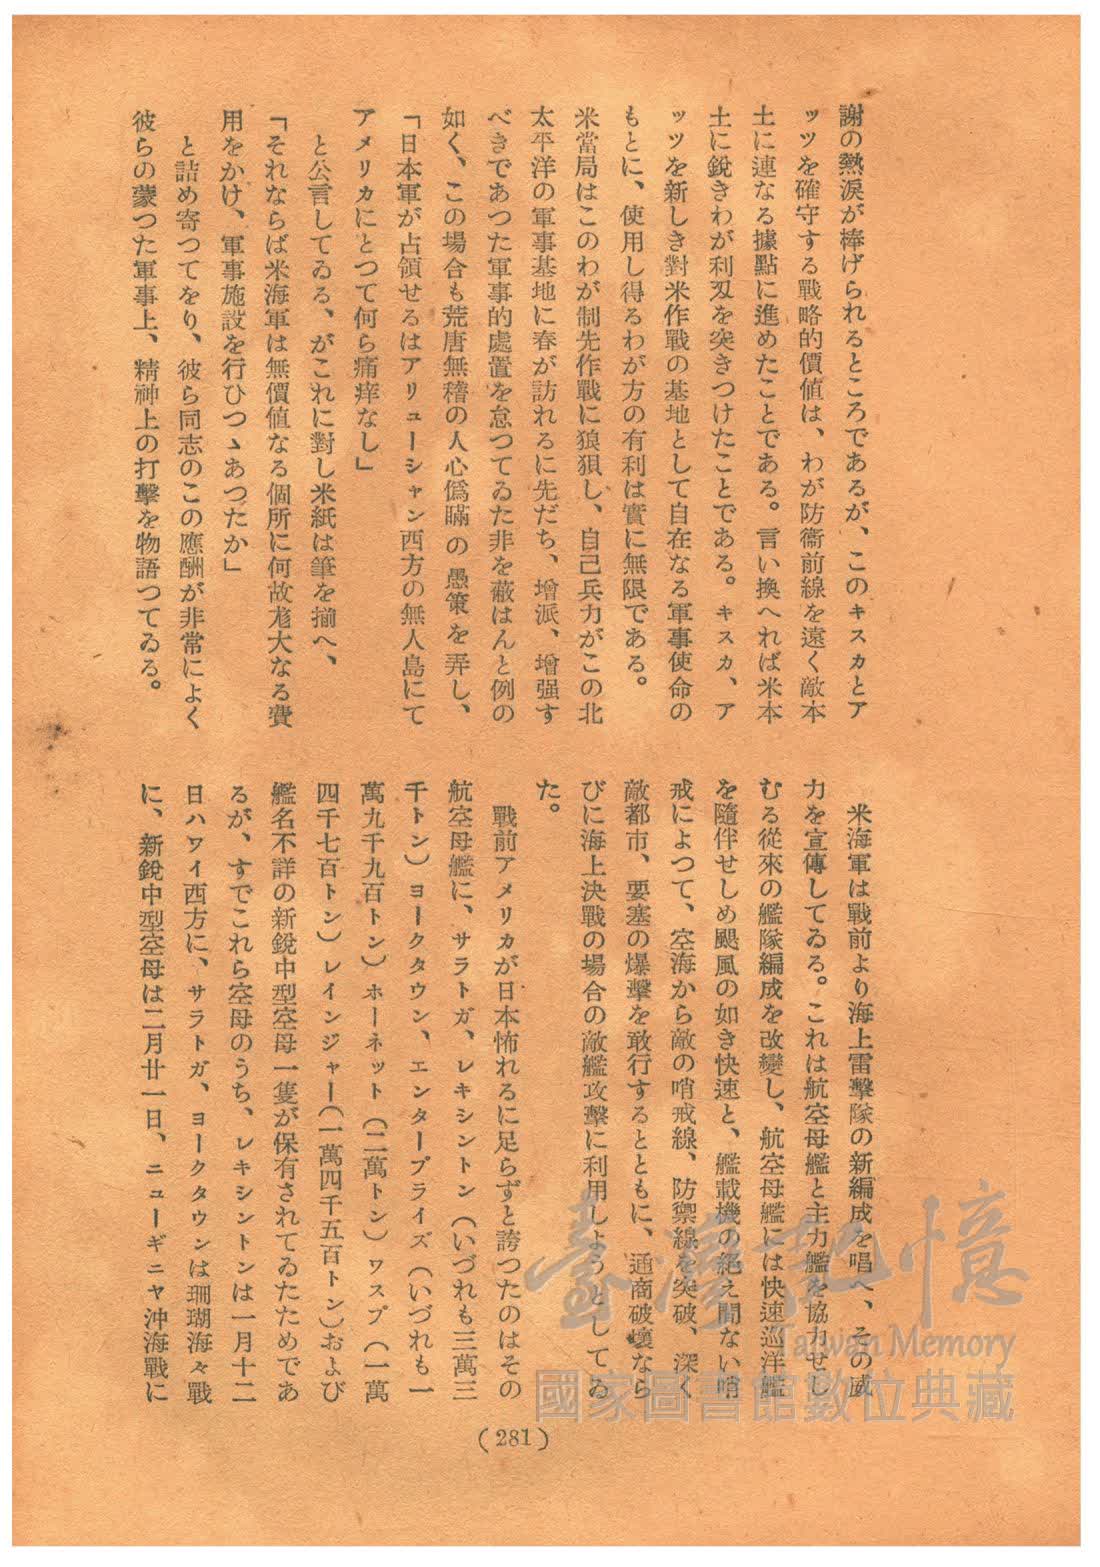 謝の熱涙が棒げられるところであるが、このキスカとア
ッツを確守する戰略的價値は、わが防衞前線を遠く敵本
土に連なる據點に進めたことである。言い換へれば米本
土に鋭きわが利刄を突きつけたことである。キスカ、ア
ッツを新しき對米作戰の基地として自在なる軍事使命の
もとに、使用し得るわが方の有利は實に無限である。
米當局はこのわが制先作戰に狼狽し、自己兵力がこの北
太平洋の軍事基地に春が訪れるに先だち、増派、増强す
べきであつた軍事的處置を怠つてゐた非を蔽はんと例の
如く、この場合も荒唐無稽の人心僞瞞の愚策を弄し、
「日本軍が占領せるはアリューシャン西方の無人島にて
アメリカにとつて何ら痛痒なし」
と公言してゐる、がこれに對し米紙は筆を揃へ、
「それならば米海軍は無價値なる個所に何故尨大なる費
用をかけ、軍事施設を行ひつゝあつたか」
と詰め寄つてをり、彼ら同志のこの應酬が非常によく
彼らの蒙つた軍事上、精神上の打擊を物語つてゐる。
米海軍は戰前より海上雷擊隊の新編成を唱へ、その威
力を宣傳してゐる。これは航空母艦と主力艦を協力せし
むる從來の艦隊編成を改變し、航空母艦には快速巡洋艦
を隨伴せしめ颶風の如き快速と、艦載機の絶え間ない哨
戒によつて、空海から敵の哨戒線、防禦線を突破、深く
敵都市、要塞の爆擊を敢行するとともに、通商破壞なら
びに海上決戰の場合の敵艦攻擊に利用しようとしてゐ
た。
戰前アメリカが日本怖れるに足らずと誇つたのはその
航空母艦に、サラトガ、レキシントン（いづれも三萬三
千トン）ヨークタウン、エンタープライズ（いづれも一
萬九千九百トン）ホーネット（二萬トン）ワスプ（一萬
四千七百トン）レインジャー（一萬四千五百トン）および
艦名不詳の新鋭中型空母一隻が保有されてゐたためであ
るが、すでこれら空母のうち、レキシントンは一月十二
日ハワイ西方に、サラトガ、ヨークタウンは珊瑚海々戰
に、新鋭中型空母は二月廿一日、ニューギニヤ沖海戰に
(281)
臺灣記憶
Taiwan Memory
國家圖書館數位典藏